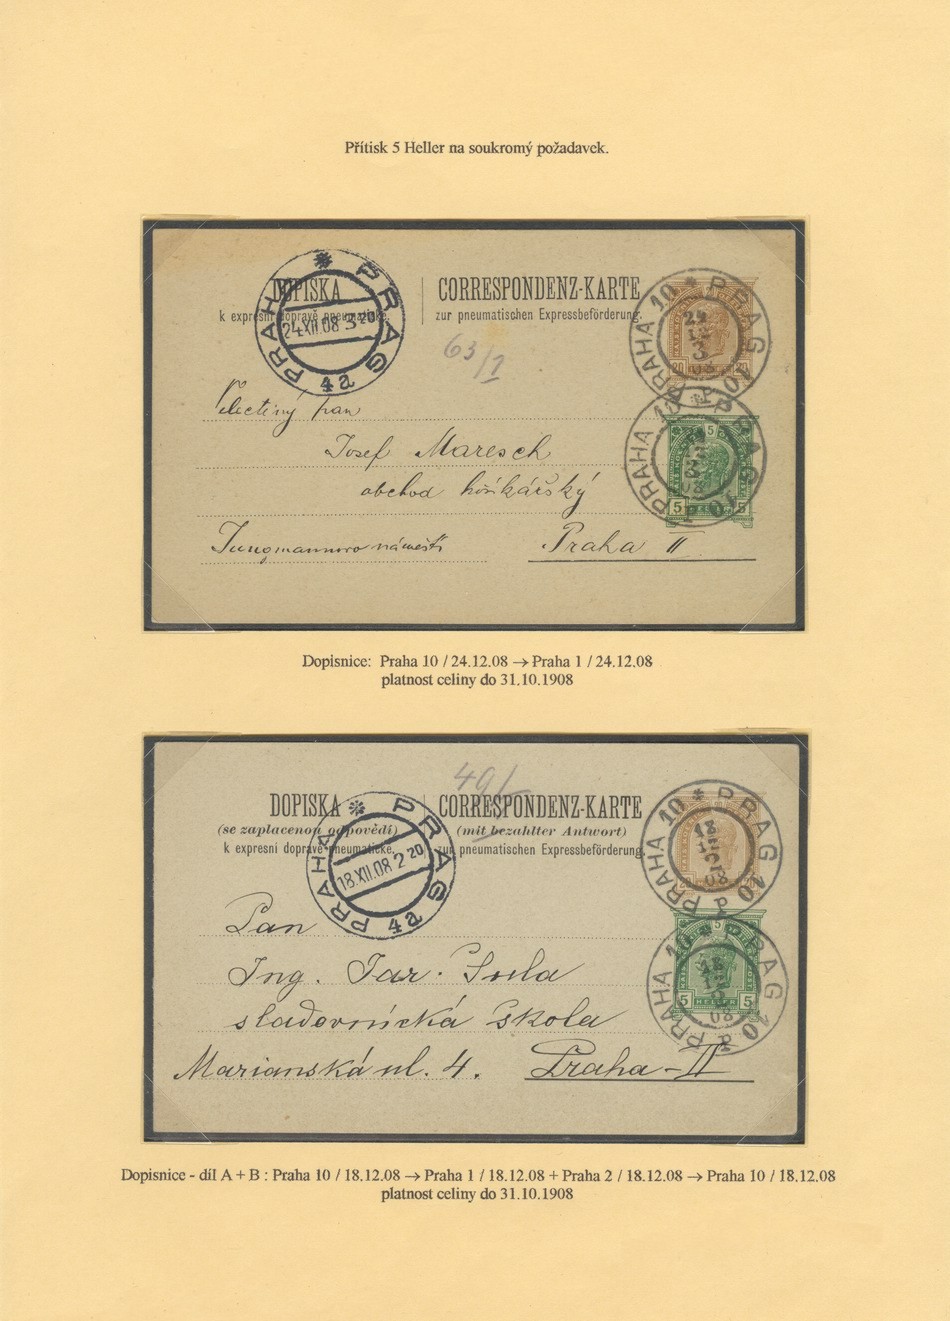 Přítisk 5 Heller na soukromý požadavek.
DOPISKA
k expresní dopravě pneumatické.
CORRESPONDENZ-KARTE
zur pneumatischen Expressbeförderung.
PRAHA * PRAG
24.XII.08 3 20
4a
PRAHA 10 * PRAG 10
20 20
63/1
pan
PRAHA 10 * PRAG 10
5
5 HELLER 5
Josef Maresch
obchod
Jungmannovo náměstí
Praha II
Dopisnice: Praha 10 / 24.12.08 → Praha 1 / 24.12.08
platnost celiny do 31.10.1908
49/
DOPISKA
(se zaplacenou odpovědí)
k expresní dopravě pneumatické.
CORRESPONDENZ-KARTE
(mit bezahlter Antwort)
zur pneumatischen Expressbeförderung.
PRAHA * PRAG
18.XII.08 2 20
4a
PRAHA 10 * PRAG 10
P
5
5 HELLER 5
PRAHA 10 * PRAG 10
P
Pan
Ing. Jar. Šula
sladovnická škola
Marianská ul. 4. Praha-II
Dopisnice - díl A + B : Praha 10 / 18.12.08 → Praha 1 / 18.12.08 + Praha 2 / 18.12.08 → Praha 10 / 18.12.08
platnost celiny do 31.10.1908